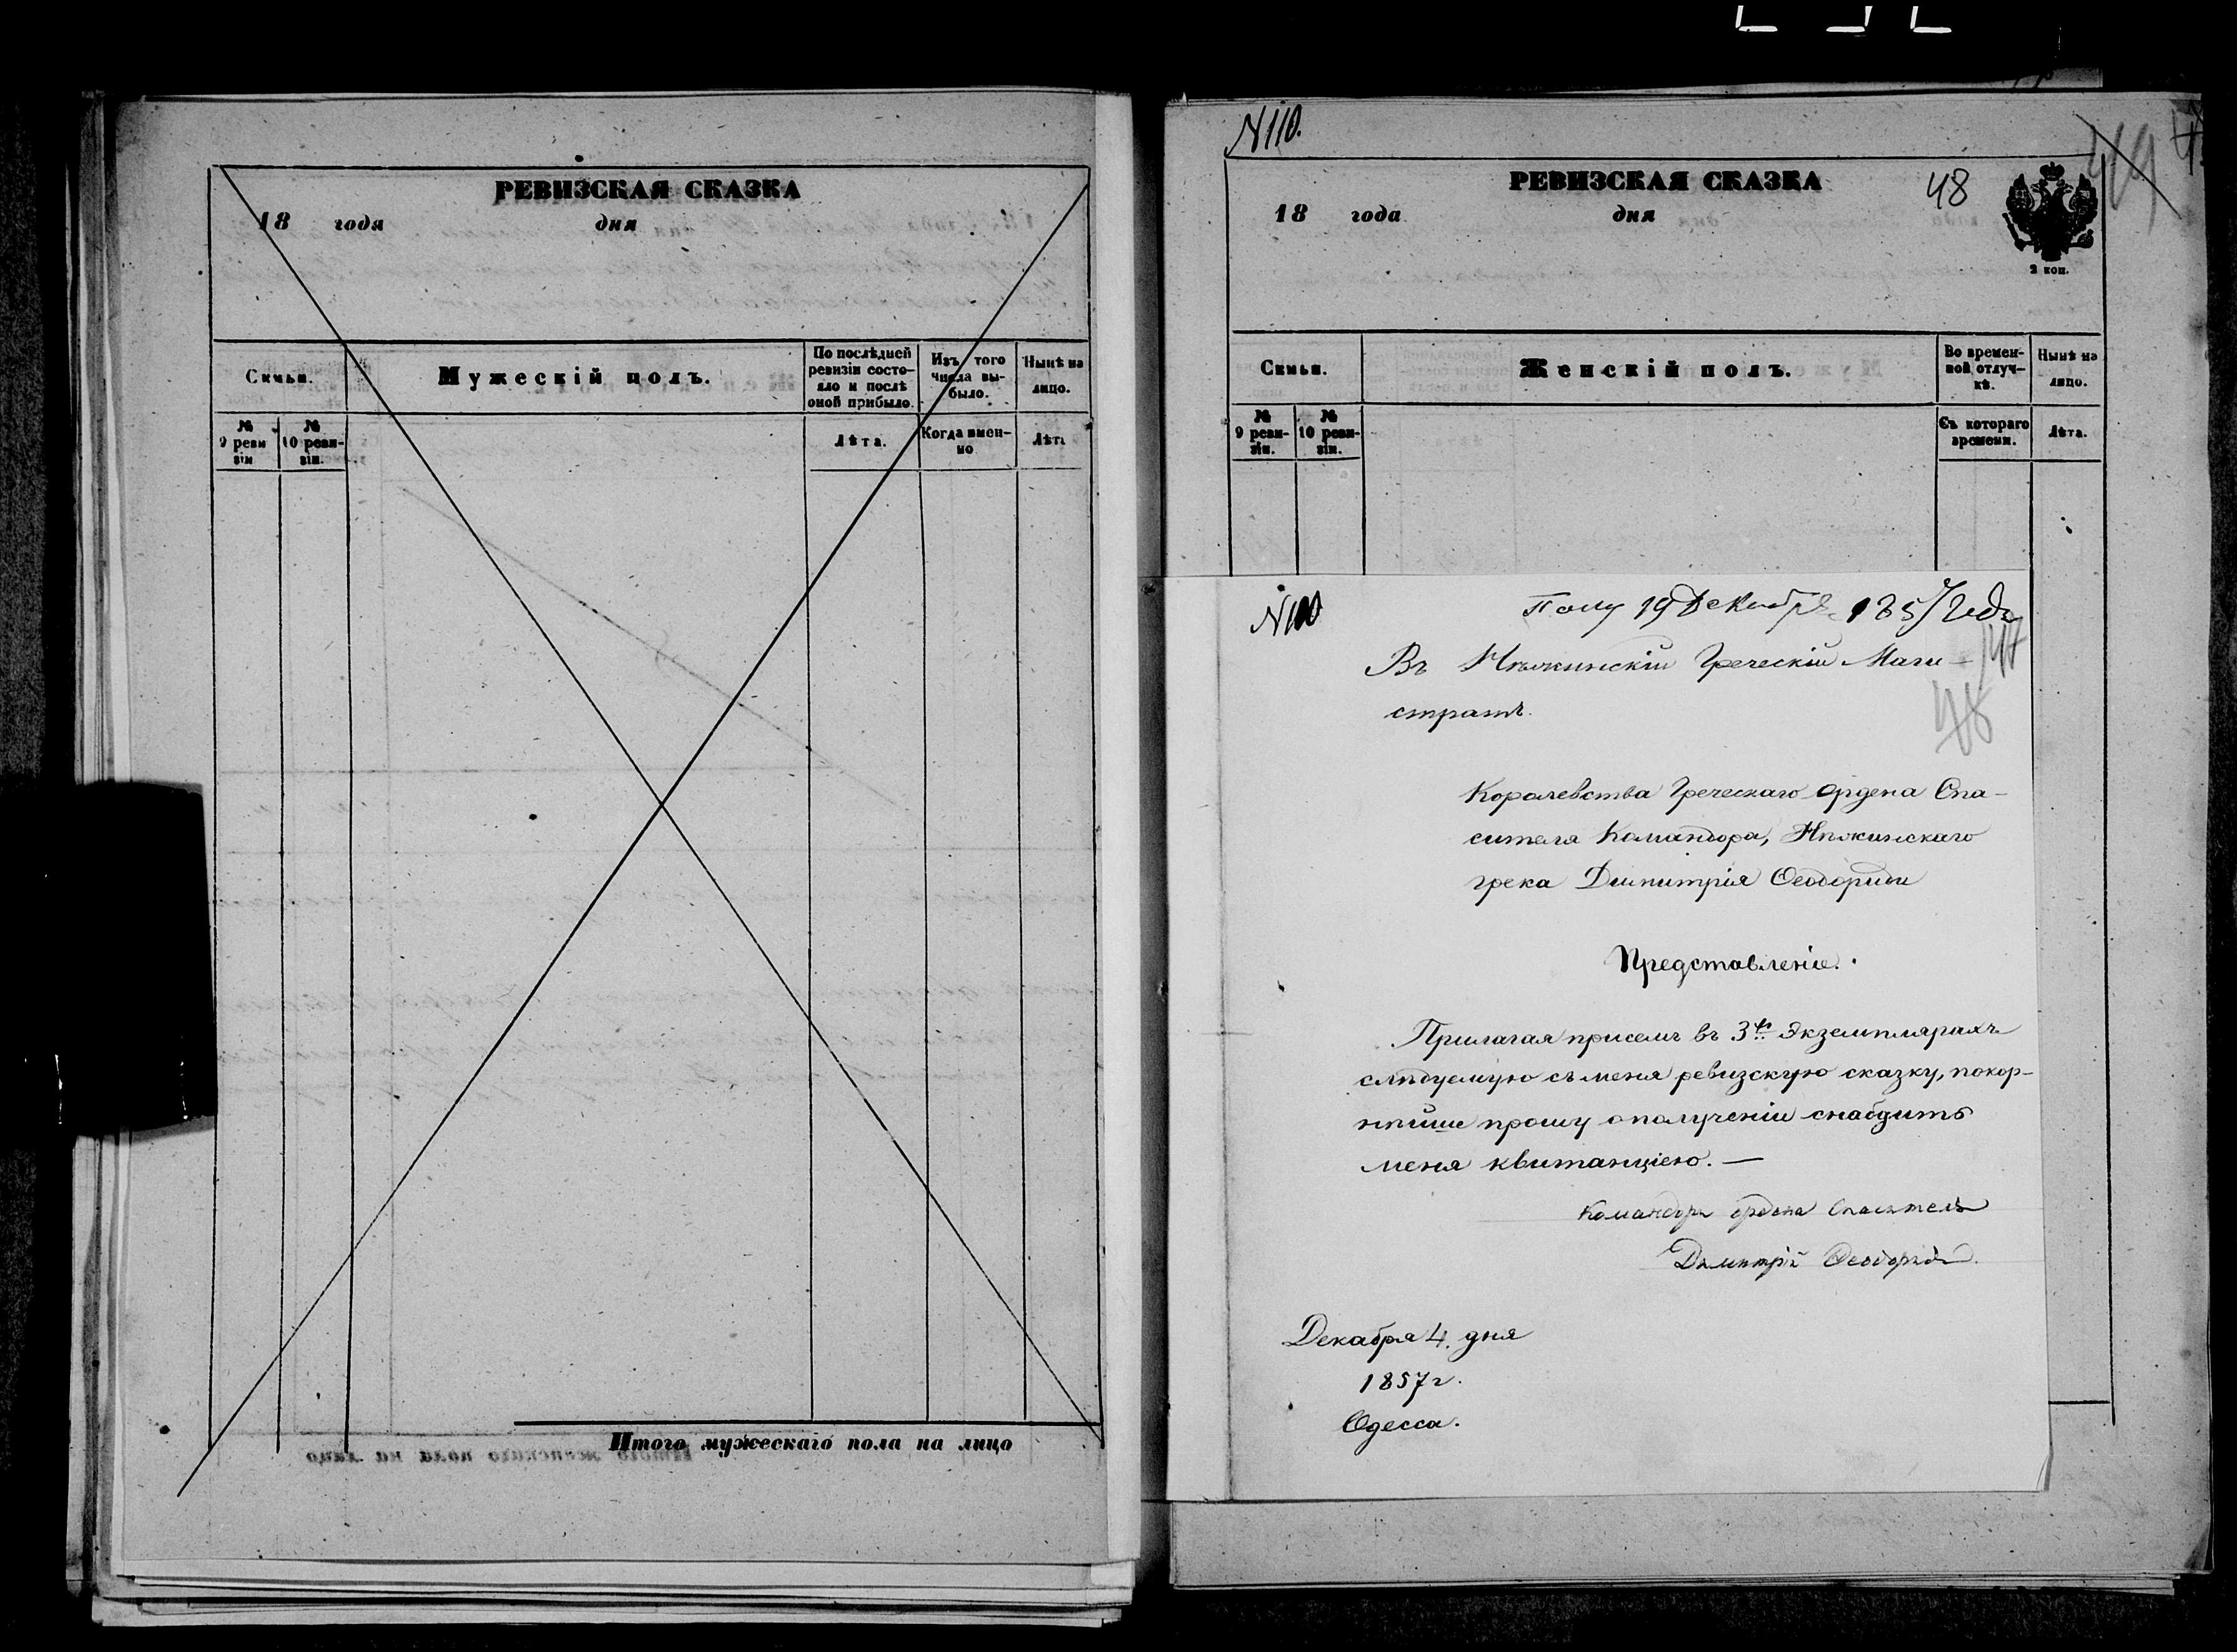 РЕВИЗСКАЯ СКАЗКА
18 года дня
Семьи.
Мужескій полъ.
По послѣдней ревизіи состояло и послѣ оной прибыло.
Изъ того числа выбыло.
Нынѣ на лицо.
№ 9 ревизіи
№ 10 ревизіи.
Лѣта.
Когда именно
Лѣта
Итого мужескаго пола на лицо
N 110.
РЕВИЗСКАЯ СКАЗКА
48
49
18 года дня
2 коп.
Семьи.
Женскій полъ.
Во временной отлучкѣ.
Нынѣ на лицо.
№ 9 ревизіи.
№ 10 ревизіи.
Съ котораго времени.
Лѣта.
Полу 19 Декабря 1857 года
Въ Нѣжинскій Греческій Маги-
стратъ.
47
48
Королевства Греческаго Ордена Спа-
сителя Командора, Нѣжинскаго
грека Димитрія Ѳеодориди
Представленіе.
Прилагая присемъ въ 3хъ Экземплярахъ
слѣдуемую съ меня ревизскую сказку, покор-
нѣйше прошу о полученіи снабдить
меня квитанціею. —
Командоръ ордена Спасителя
Димитрій Ѳеодориди.
Декабря 4. дня
1857 г.
Одесса.